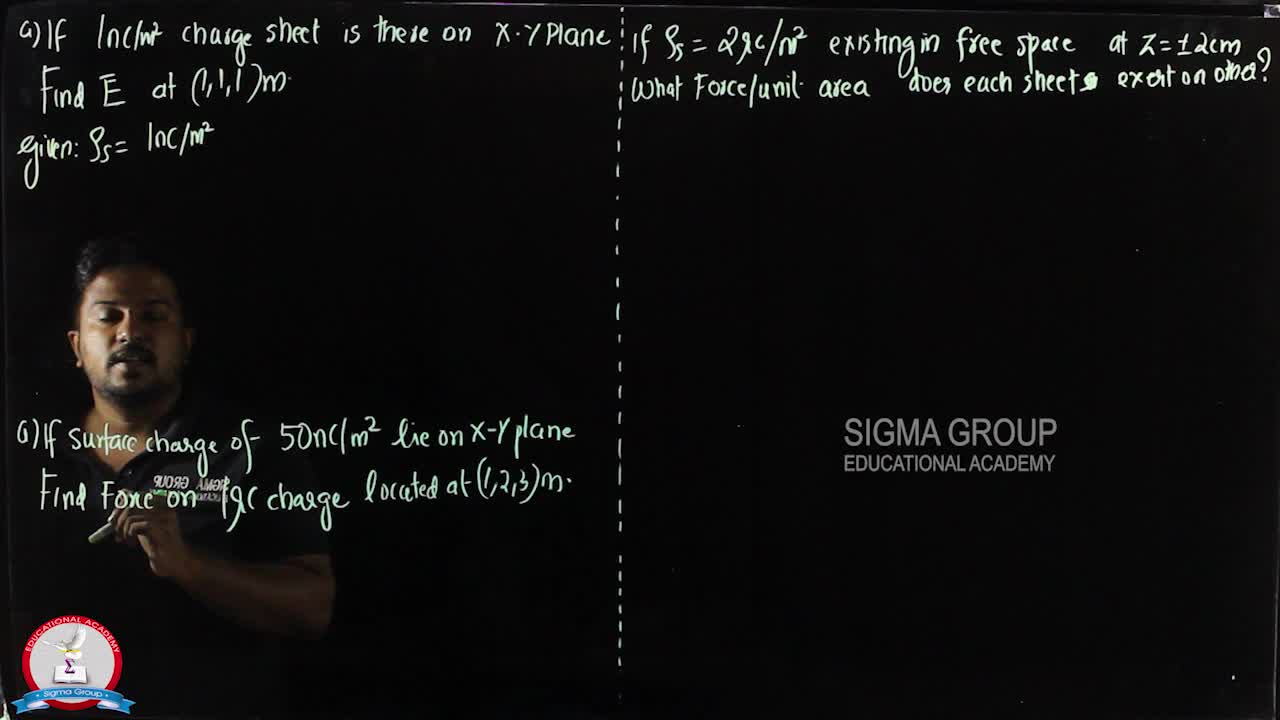 a) If 1nc/m² charge sheet is there on X-Y Plane
Find E at (1,1,1)m.
given: ρs = 1nc/m²
a) If surface charge of 50nc/m² lie on X-Y plane
Find Force on 1μC charge located at (1,2,3)m.
If ρs = 2μc/m² existing in free space at Z=±2cm
What Force/unit area does each sheet exert on other?
SIGMA GROUP
EDUCATIONAL ACADEMY
SIGMA GROUP
EDUCATIONAL ACADEMY
Σ
Sigma Group